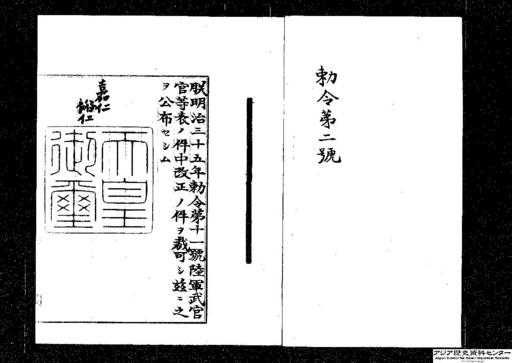 勅令第二號
朕明治三十五年勅令第十一號陸軍武官
官等表ノ件中改正ノ件ヲ裁可シ玆ニ之
ヲ公布セシム
嘉仁
裕仁
天皇
御璽
アジア歴史資料センター
Japan Center for Asian Historical Records